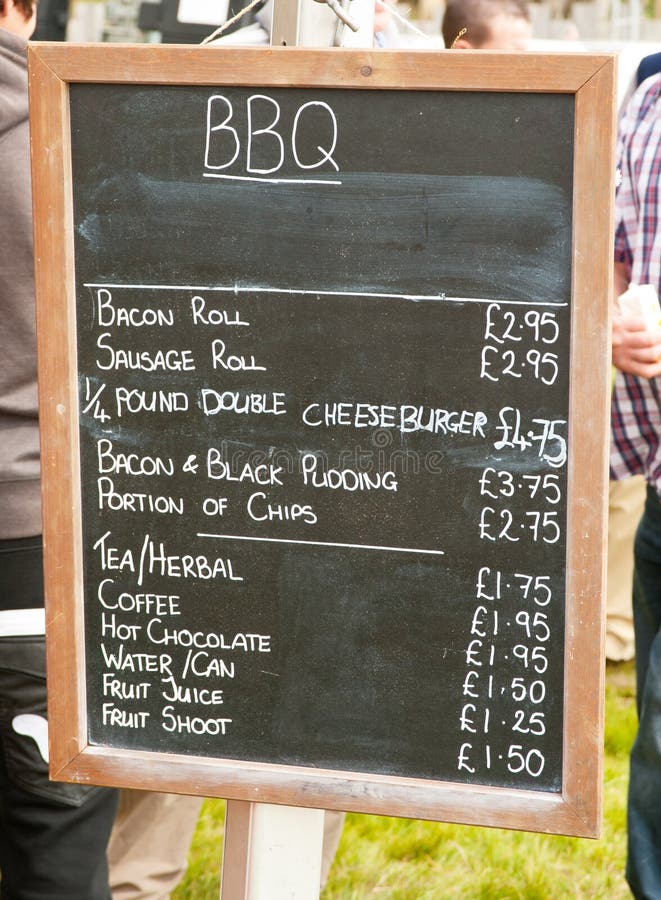 BBQ
BACON ROLL £2.95
SAUSAGE ROLL £2.95
1/4 POUND DOUBLE CHEESEBURGER £4.75
BACON & BLACK PUDDING £3.75
PORTION OF CHIPS £2.75
TEA/HERBAL £1.75
COFFEE £1.95
HOT CHOCOLATE £1.95
WATER/CAN £1.50
FRUIT JUICE £1.25
FRUIT SHOOT £1.50
dreamstime